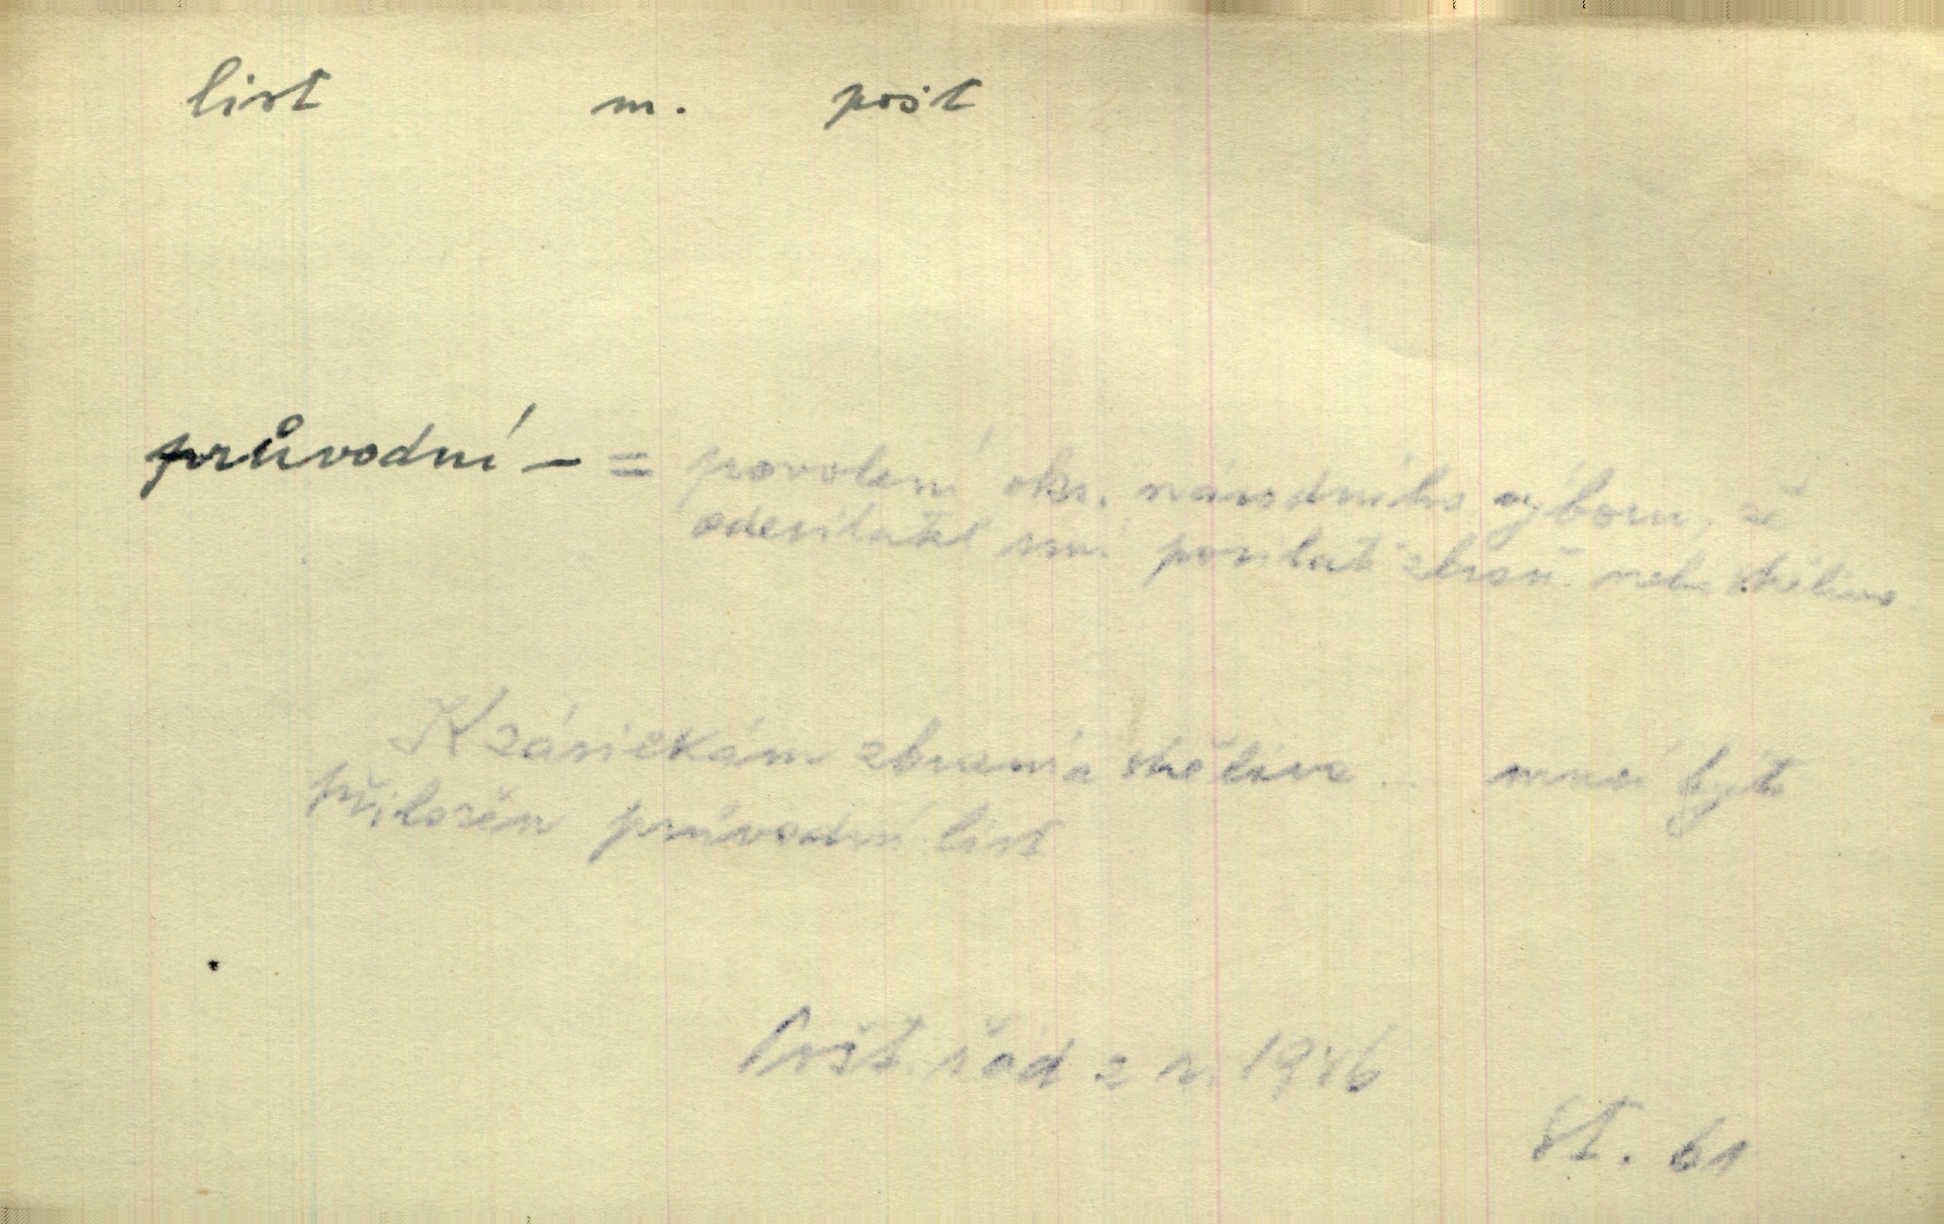 list m. pošt
průvodní – = povolení okr. národního výboru, že
odesílatel smí posílat zbraň nebo střelivo
K zásilkám zbraní a střeliva .. musí být
přiložen průvodní list
Pošt. řád z r. 1946
St. 61